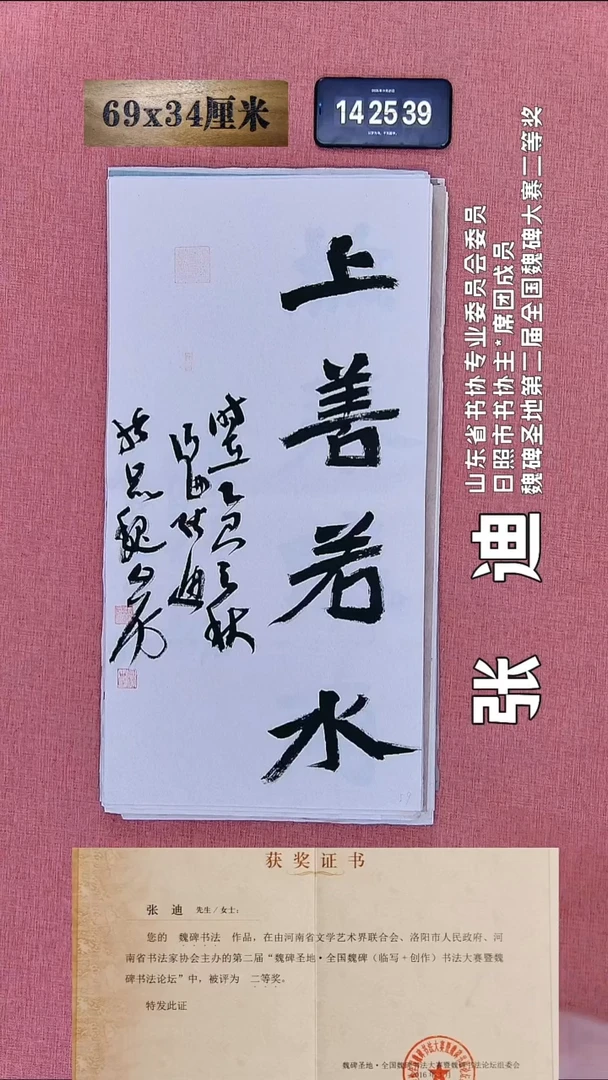 69x34厘米
14 25 39
上善若水
时在乙巳之秋
张迪
山东省书协专业委员会委员
日照市书协主*席团成员
魏碑圣地第二届全国魏碑大赛二等奖
获奖证书
张 迪 先生/女士：
您的 魏碑书法 作品，在由河南省文学艺术界联合会、洛阳市人民政府、河
南省书法家协会主办的第二届“魏碑圣地·全国魏碑（临写+创作）书法大赛暨魏
碑书法论坛”中，被评为 二等奖。
特发此证
魏碑圣地·全国魏碑书法大赛暨魏碑书法论坛组委会